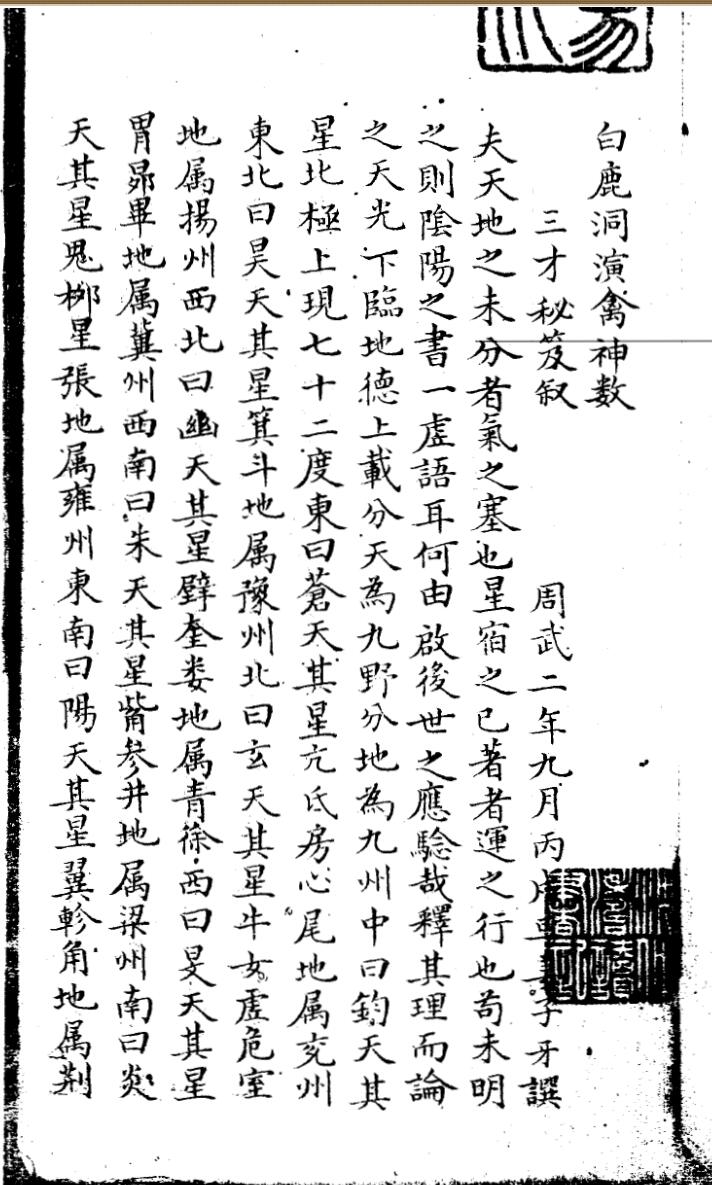 白鹿洞演禽神数
三才秘笈叙
周武二年九月丙 子牙譔
夫天地之未分者氣之塞也星宿之已著者運之行也苟未明
之則陰陽之書一虚語耳何由啟後世之應驗哉釋其理而論
之天光下臨地德上載分天為九野分地為九州中曰鈞天其
星北極上現七十二度東曰蒼天其星亢氐房心尾地属兗州
東北曰昊天其星箕斗地属豫州北曰玄天其星牛女虚危室
地属揚州西北曰幽天其星壁奎娄地属青徐西曰旻天其星
胃昴畢地属冀州西南曰朱天其星觜參井地属梁州南曰炎
天其星鬼栁星張地属雍州東南曰陽天其星翼軫角地属荆